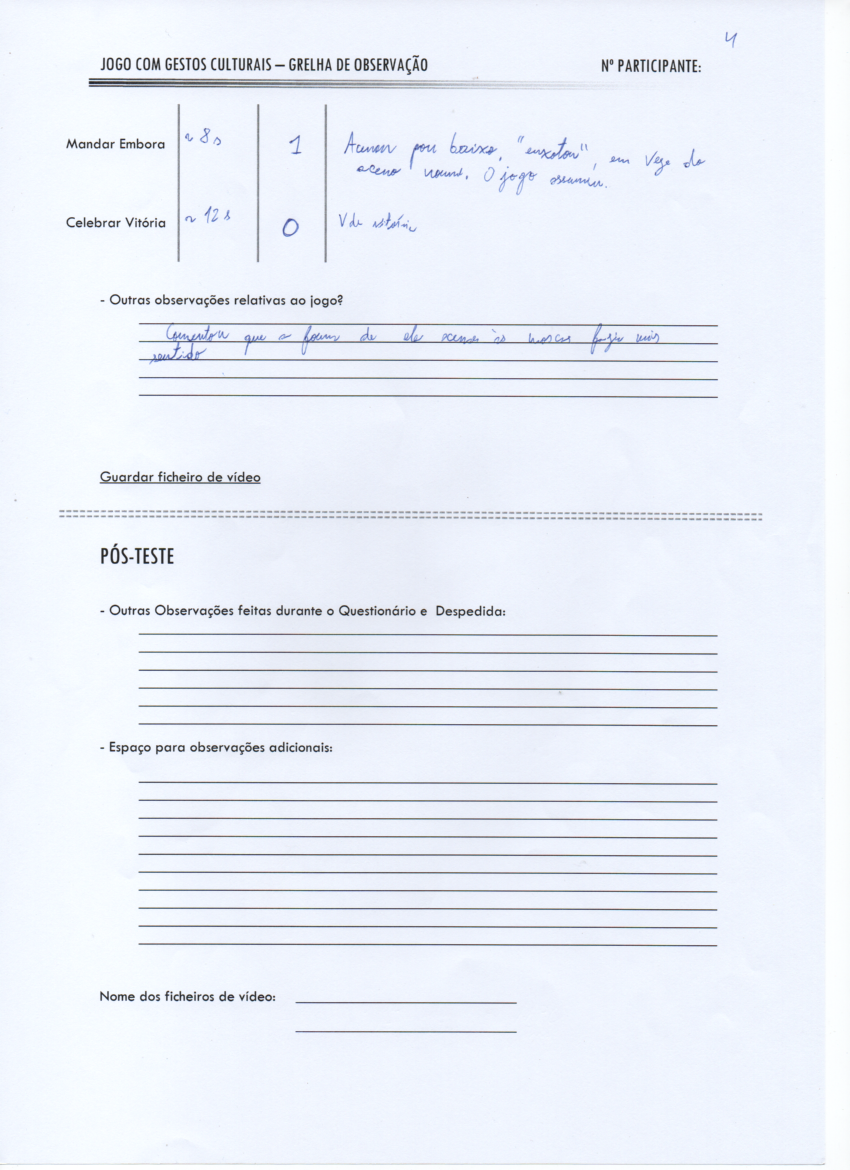 4
JOGO COM GESTOS CULTURAIS – GRELHA DE OBSERVAÇÃO Nº PARTICIPANTE:
Mandar Embora ~ 8 s 1 Acenou por baixo, "enxotou", em vez do
aceno normal. O jogo assumiu.
Celebrar Vitória ~ 12 s 0 V de vitória
- Outras observações relativas ao jogo?
Comentou que a forma de ele acenar às moscas fazia mais
sentido
Guardar ficheiro de vídeo
PÓS-TESTE
- Outras Observações feitas durante o Questionário e Despedida:
- Espaço para observações adicionais:
Nome dos ficheiros de vídeo: